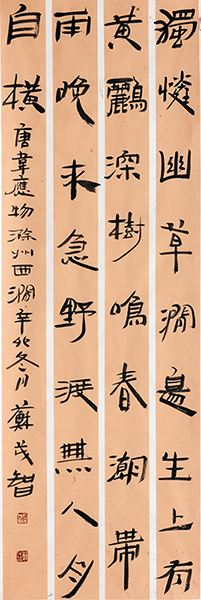 獨憐幽草澗邊生上有
黃鸝深樹鳴春潮帶
雨晚来急野渡無人舟
自橫
唐韋應物滁州西澗辛丑冬月 蘇茂智